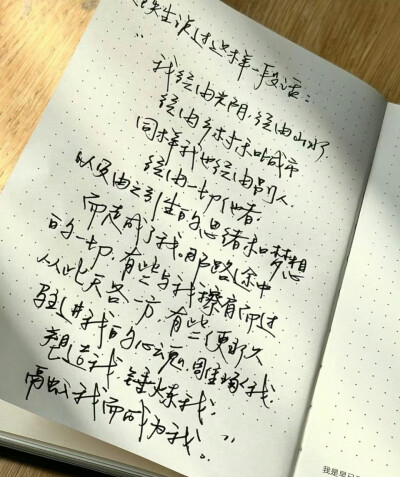 铁生说过这样一段话：
“我经由光阴，经由山水，
经由乡村和城市
同样我也经由别人
经由一切他者
以及由之引生的思绪和梦想
而走成了我。那路途中
的一切，有些与我擦肩而过
从此天各一方，有些便永久
驻进我的心魂，雕琢我，
塑造我，锤炼我，
融入我而成为我。”
我是早已